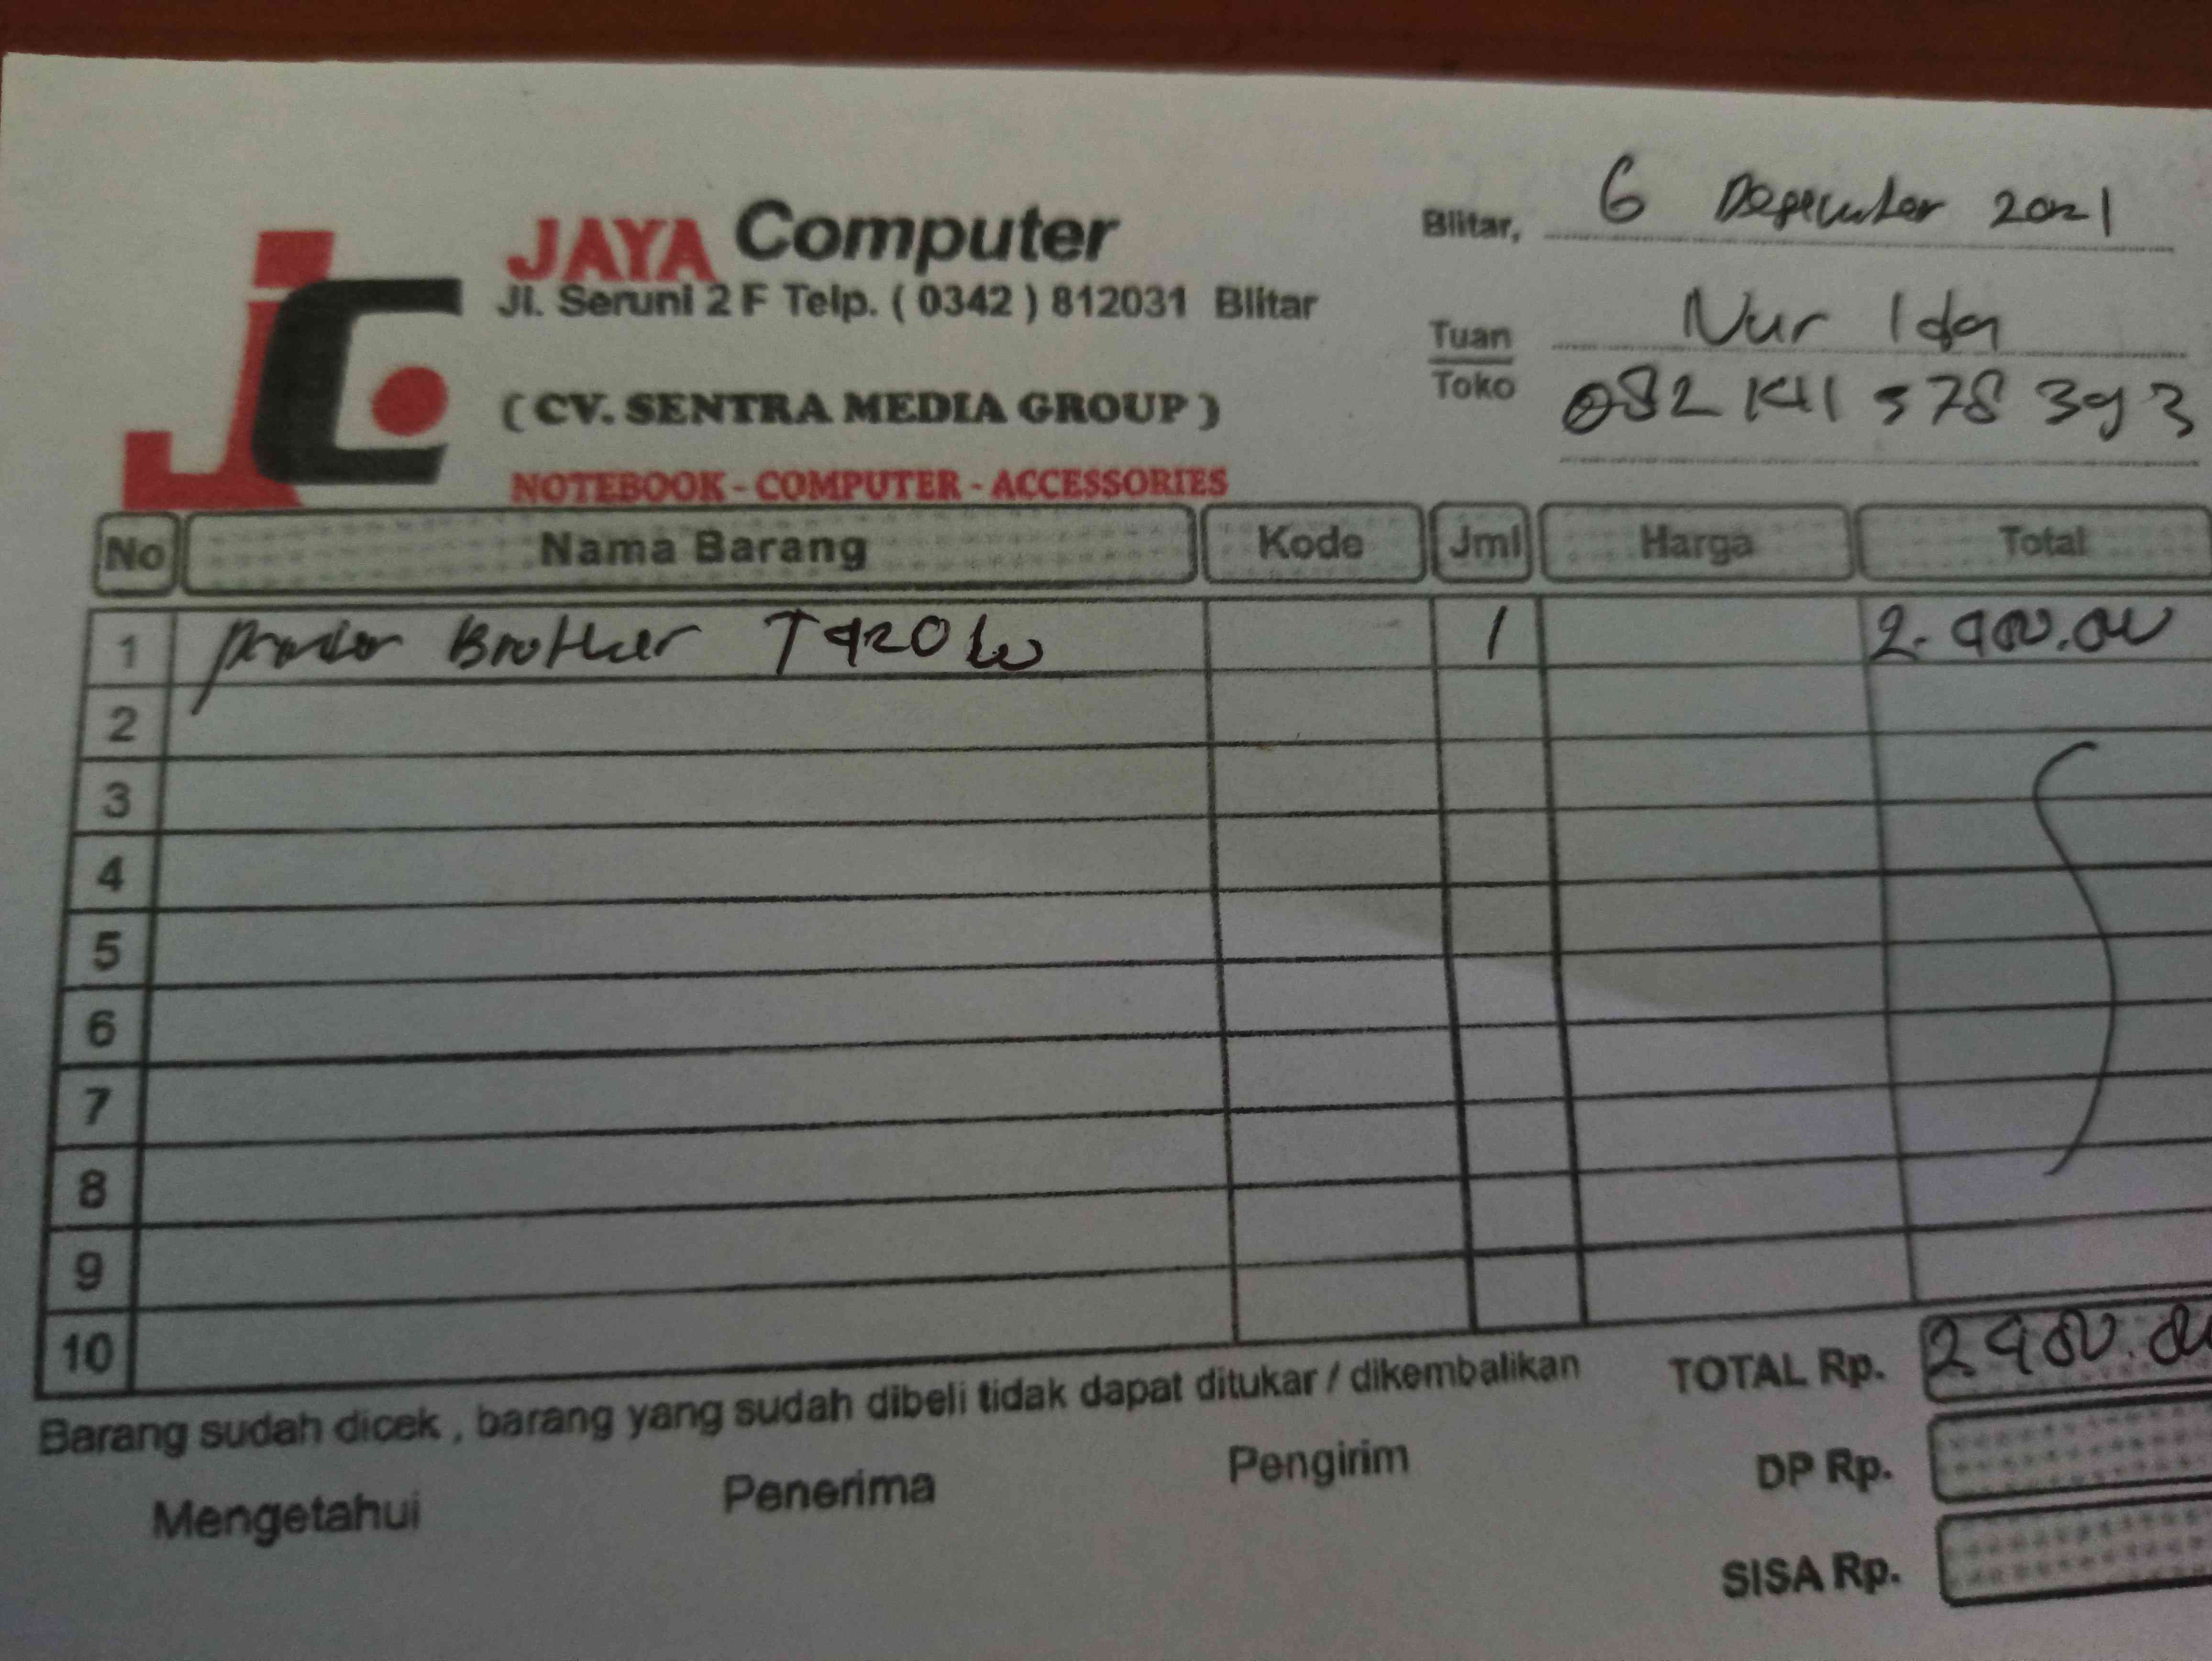 JAYA Computer
Jl. Seruni 2 F Telp. ( 0342 ) 812031 Blitar
( CV. SENTRA MEDIA GROUP )
NOTEBOOK - COMPUTER - ACCESSORIES
Blitar, 6 Desember 2021
Tuan Nur Ida
Toko
No Nama Barang Kode Jml Harga Total
1 Brother T420W 1
2
3
4
5
6
7
8
9
10
Barang sudah dicek , barang yang sudah dibeli tidak dapat ditukar / dikembalikan
TOTAL Rp.
Mengetahui Penerima Pengirim
DP Rp.
SISA Rp.